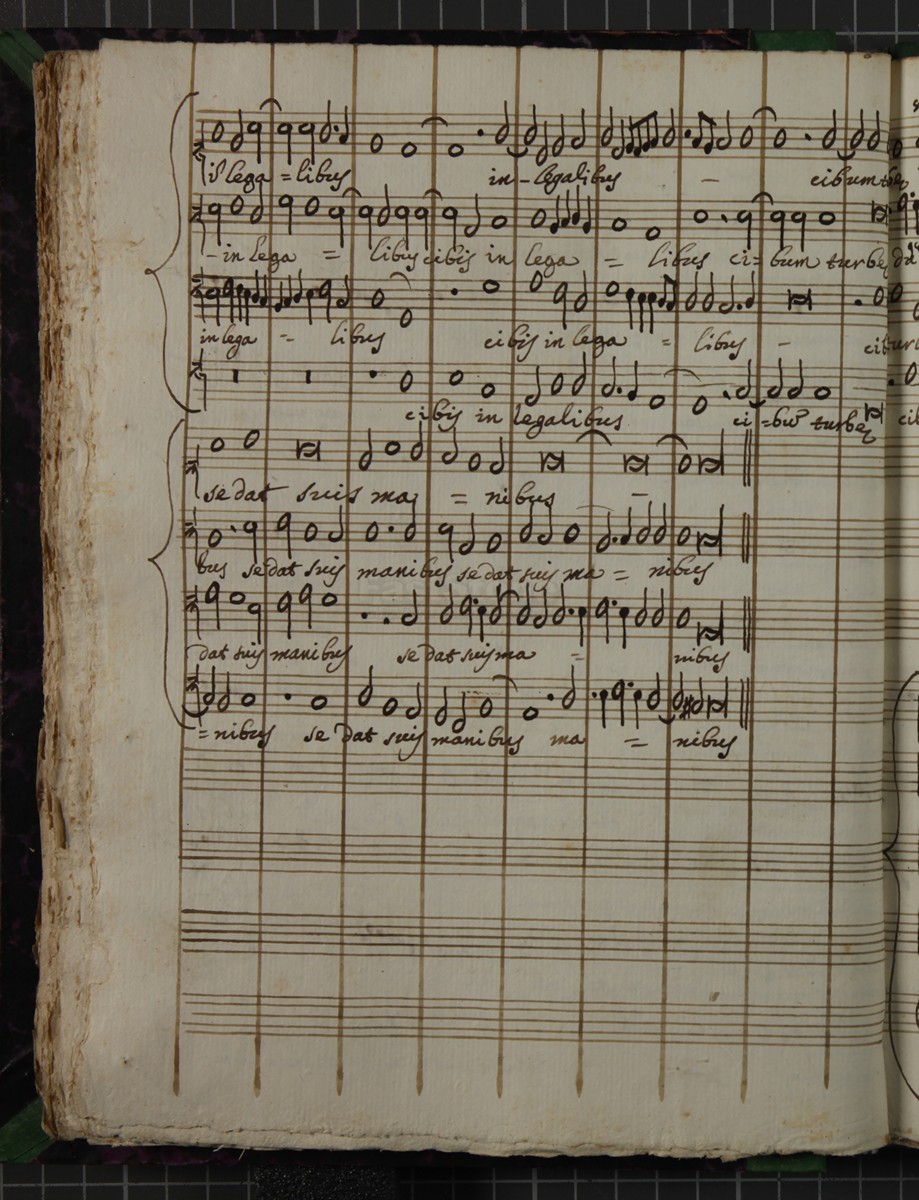 is lega = libus in - legalibus - cibum turbę
- in lega = libus cibis in lega = libus ci = bum turbę
in lega - libus cibis in lega = libus -
cibis in legalibus ci = bũ turbę
se dat suis ma = nibus -
bus se dat suis manibus se dat suis ma = nibus
dat suis manibus se dat suis ma = nibus
= nibus se dat suis manibus ma = nibus